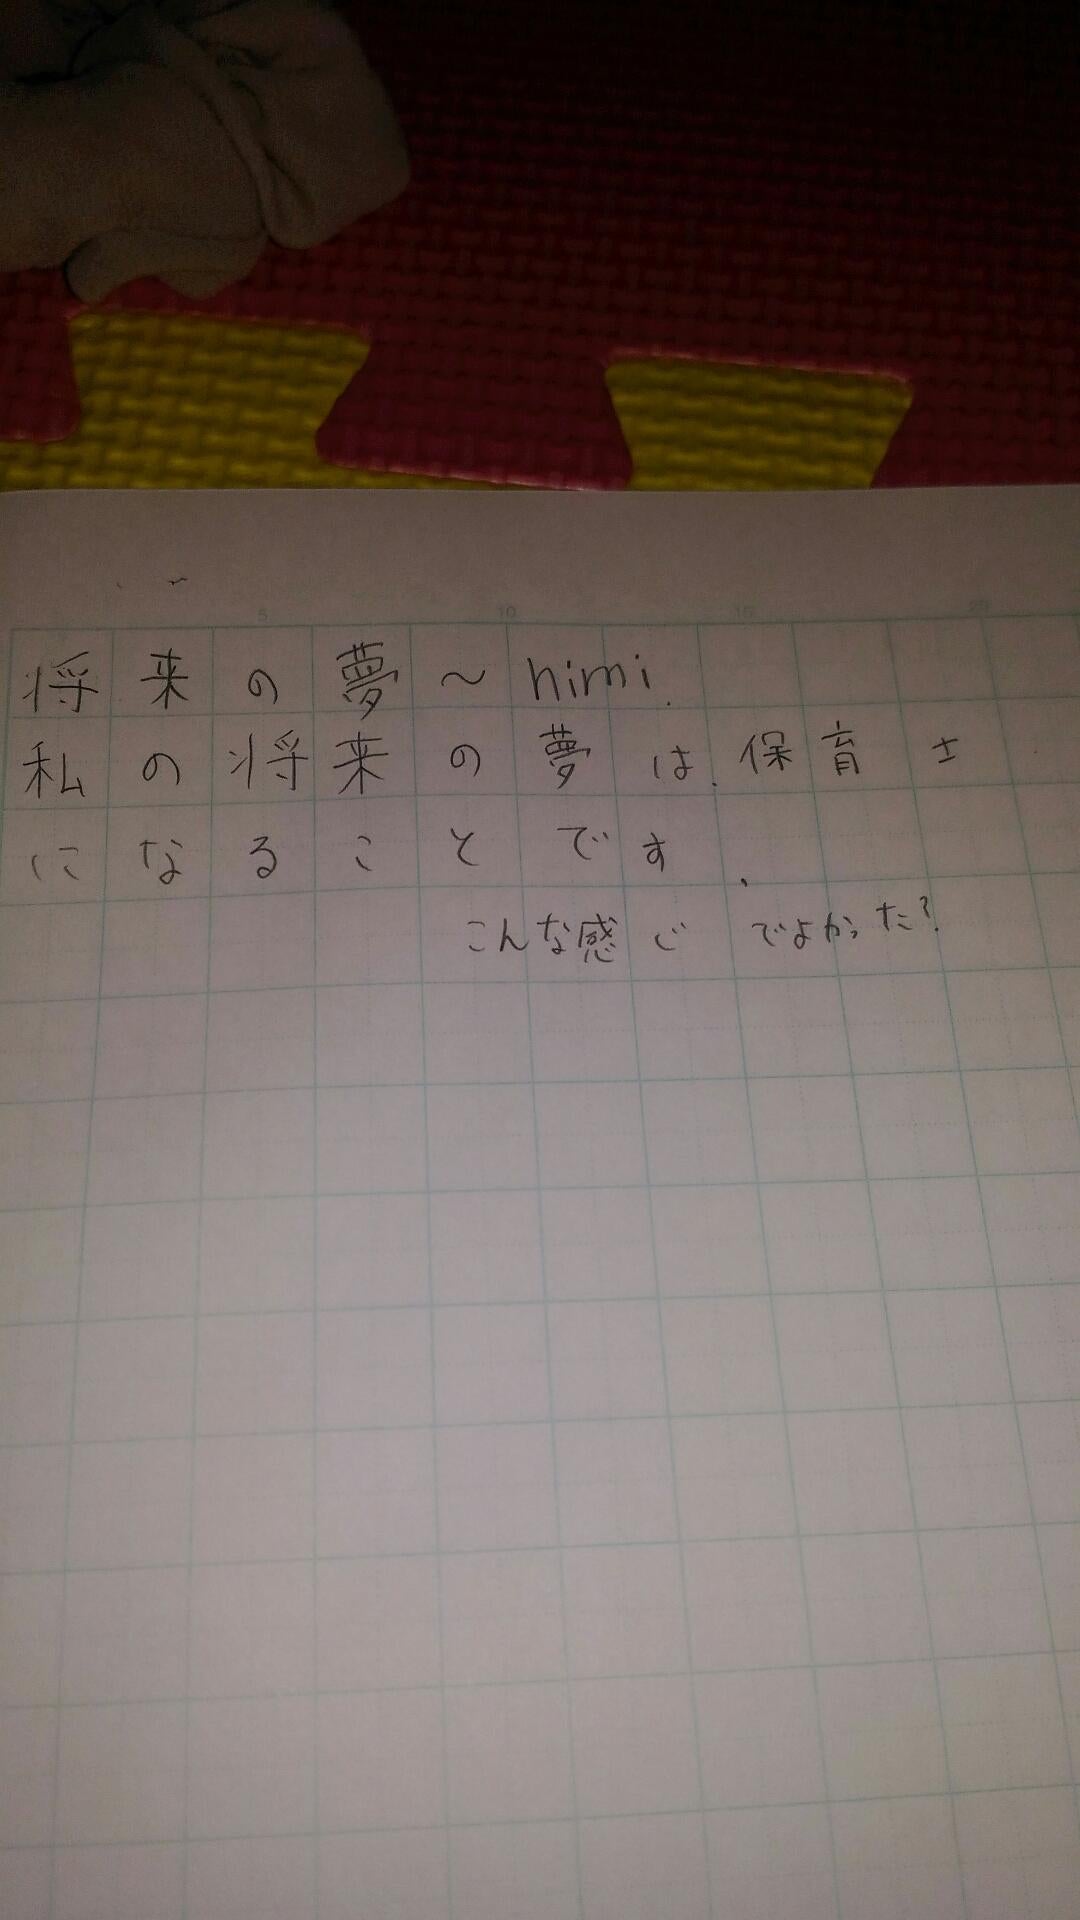 将来の夢〜himi.
私の将来の夢は、保育士
になることです、
こんな感じでよかった?
5 10 15 20